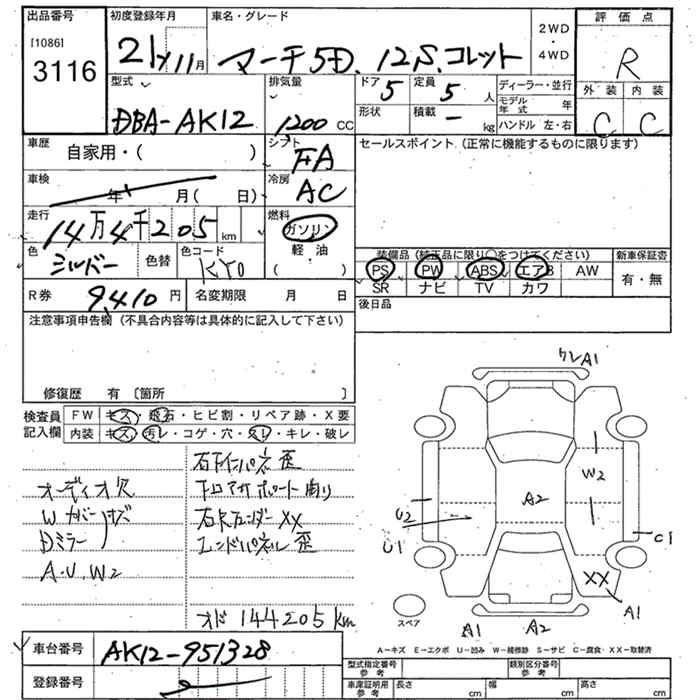 出品番号
[1086]
3116
初度登録年月
21年11月
車名・グレード
マーチ5D. 12S.コレット
2WD
・
4WD
評価点
R
外装 内装
C C
型式
DBA-AK12
排気量
1200 CC
ドア 5
定員 5 人
形状
積載 - kg
ディーラー・並行
モデル年式 年
ハンドル 左・右
車歴
自家用・( )
シフト
FA
セールスポイント(正常に機能するものに限ります)
車検
年 月( 日)
冷房
AC
走行
14万4千205 km
燃料
ガソリン
軽・油
( )
色
シルバー
色替
色コード
KY0
装備品(純正品に限り○をつけてください)
新車保証書
PS PW ABS エアB AW
SR ナビ TV カワ
有・無
R券
9,410 円
名変期限 月 日
後日品
注意事項申告欄(不具合内容等は具体的に記入して下さい)
修復歴 有〔箇所 〕
検査員記入欄
FW キズ・飛石・ヒビ割・リペア跡・X要
内装 キズ・汚レ・コゲ・穴・スレ・キレ・破レ
右下インパネ歪
オーディオ欠
Wカバー キズ
Dミラー
右Rフェンダー XX
エンドパネル 歪
A.U.W2
オド 144205km
ワレA1
W2
A2
U2
U1
C1
XX
A1
A1
A2
スペア
A-キズ E-エクボ U-凹み W-補修跡 S-サビ C-腐食・XX-取替済
車台番号
AK12-951328
登録番号
型式指定番号
参考
類別区分番号
参考
車庫証明用
参考
長さ cm
幅 cm
高さ cm